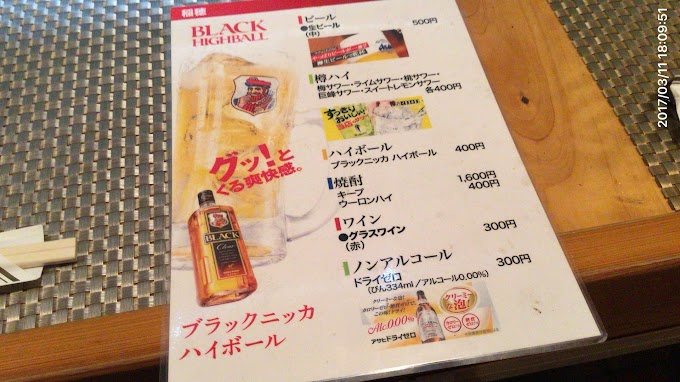 稲穂
BLACK
HIGHBALL
グッ!と
くる爽快感。
BLACK
Clear
ブラックニッカ
ハイボール
ビール
●生ビール 500円
(中)
樽ハイ
梅サワー・ライムサワー・桃サワー・
巨峰サワー・スイートレモンサワー
各400円
すっきり
おいしい
ハイボール 400円
ブラックニッカ ハイボール
焼酎
キープ 1,600円
ウーロンハイ 400円
ワイン
●グラスワイン 300円
(赤)
ノンアルコール
ドライゼロ 300円
(びん334ml/アルコール0.00%)
クリーミーな泡!
Alc.0.00%
アサヒドライゼロ
2017/03/11 18:09:51